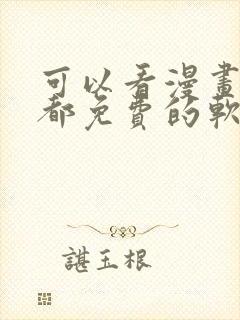 可以看漫畫
都免費的軟
諶玉根